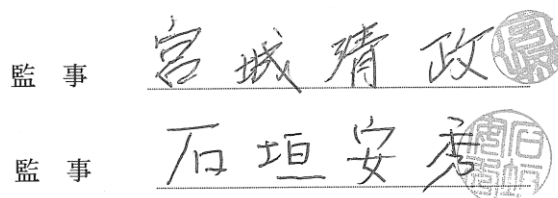 監事 宮城清政
監事 石垣安彦